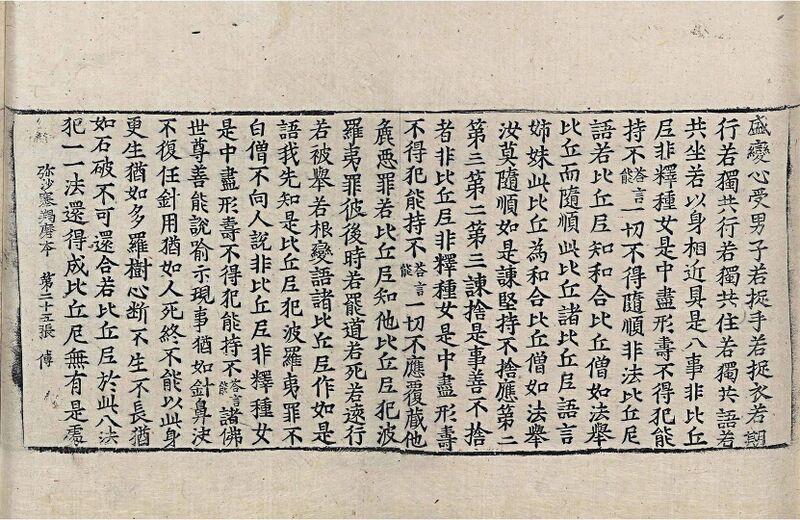 盛變心受男子若捉手若捉衣若期
行若獨共行若獨共住若獨共語若
共坐若以身相近具是八事非比丘
尼非釋種女是中盡形壽不得犯能
持不答言能一切不得隨順非法比丘尼
語若比丘尼知和合比丘僧如法舉
比丘而隨順此比丘諸比丘尼語言
姊妹此比丘為和合比丘僧如法舉
汝莫隨順如是諫堅持不捨應第二
第三第二第三諫捨是事善不捨
者非比丘尼非釋種女是中盡形壽
不得犯能持不答言能一切不應覆藏他
麁惡罪若比丘尼知他比丘尼犯波
羅夷罪彼後時若罷道若死若遠行
若被舉若根變語諸比丘尼作如是
語我先知是比丘尼犯波羅夷罪不
白僧不向人說非比丘尼非釋種女
是中盡形壽不得犯能持不答言能諸佛
世尊善能說喻示現事猶如針鼻決
不復任針用猶如人死終不能以此身
更生猶如多羅樹心断不生不長猶
如石破不可還合若比丘尼於此八法
犯一一法還得成比丘尼無有是處
弥沙塞羯磨本 第二十五張 傅